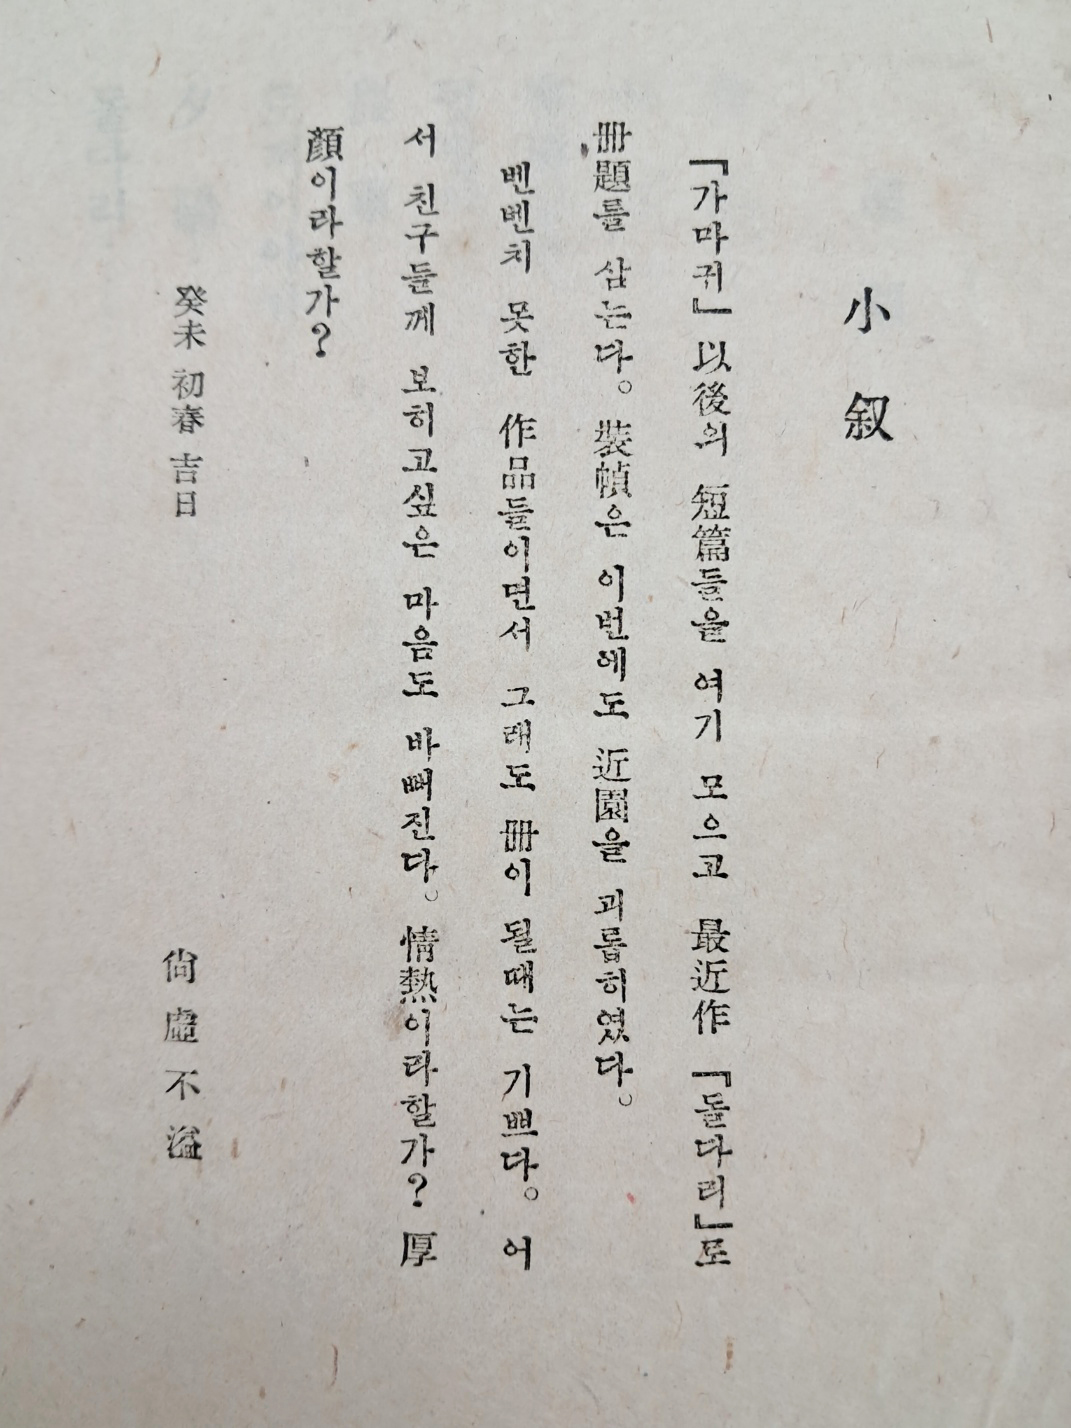 小叙
「가마귀」以後의 短篇들을 여기 모으고 最近作 「돌다리」로
冊題를 삼는다。裝幀은 이번에도 近園을 괴롭히였다。
벤벤치 못한 作品들이면서 그래도 冊이 될때는 기쁘다。어
서 친구들께 보히고싶은 마음도 바뻐진다。情熱이라할가? 厚
顔이라할가?
癸未 初春 吉日
尙虛不溢